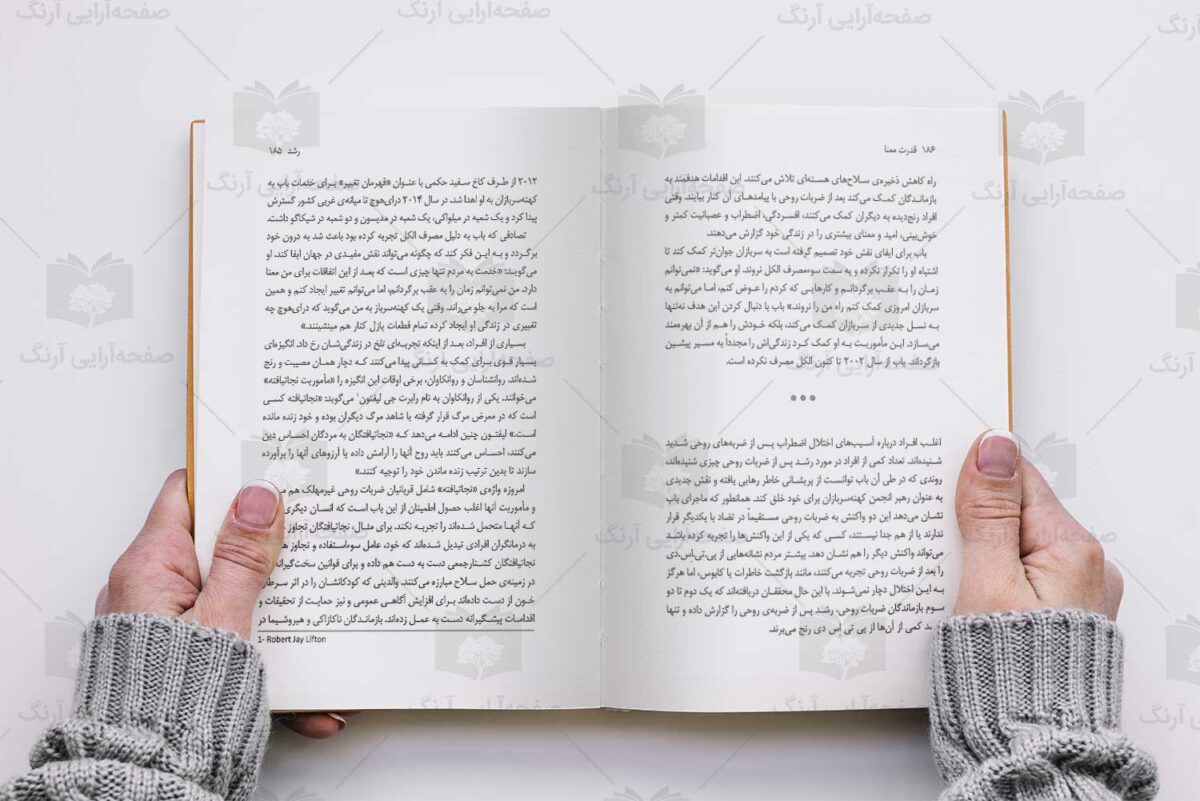 رشد ۱۸۵
۲۰۱۲ از طرف کاخ سفید حکمی با عنوان «قهرمان تغییر» برای خدمات باب به
کهنه‌سربازان به او اهدا شد. در سال ۲۰۱۴ درای‌هوچ تا میانه‌ی غربی کشور گسترش
پیدا کرد و یک شعبه در میلواکی، یک شعبه در مدیسون و دو شعبه در شیکاگو داشت.
تصادفی که باب به دلیل مصرف الکل تجربه کرده بود باعث شد به درون خود
برگردد و به این فکر کند که چگونه می‌تواند نقش مفیدی در جهان ایفا کند. او
می‌گوید: «خدمت به مردم تنها چیزی است که بعد از این اتفاقات برای من معنا
دارد. من نمی‌توانم زمان را به عقب برگردانم، اما می‌توانم تغییر ایجاد کنم و همین
است که مرا به جلو می‌راند. وقتی یک کهنه‌سرباز به من می‌گوید که درای‌هوچ چه
تغییری در زندگی او ایجاد کرده تمام قطعات پازل کنار هم مینشینند.»
بسیاری از افراد، بعد از اینکه تجربه‌ای تلخ در زندگی‌شان رخ داد. انگیزه‌ای
بسیار قوی برای کمک به کسانی پیدا می‌کنند که دچار همان مصیبت و رنج
شده‌اند. روانشناسان و روانکاوان، برخی اوقات این انگیزه را «مأموریت نجاتیافته»
می‌خوانند. یکی از روانکاوان به نام رابرت جی لیفتون¹ می‌گوید: «نجاتیافته کسی
است که در معرض مرگ قرار گرفته یا شاهد مرگ دیگران بوده و خود زنده مانده
است.» لیفتون چنین ادامه می‌دهد که «نجاتیافتگان به مردگان احساس دین
می‌کنند، احساس می‌کنند باید روح آنها را آرامش داده یا آرزوهای آنها را برآورده
سازند تا بدین ترتیب زنده ماندن خود را توجیه کنند.»
امروزه واژه‌ی «نجاتیافته» شامل قربانیان ضربات روحی غیرمهلک هم
و مأموریت آنها اغلب حصول اطمینان از این باب است که انسان دیگری
که آنها متحمل شده‌اند را تجربه نکند. برای مثال، نجاتیافتگان تجاوز
به درمانگران افرادی تبدیل شده‌اند که خود، عامل سوءاستفاده و تجاوز
نجاتیافتگان کشتارجمعی دست به دست هم داده و برای قوانین سخت‌گیرانه
در زمینه‌ی حمل سلاح مبارزه می‌کنند. والدینی که کودکانشان را در اثر سرطان
خون از دست داده‌اند برای افزایش آگاهی عمومی و نیز حمایت از تحقیقات و
اقدامات پیشگیرانه دست به عمل زده‌اند. بازماندگان ناکازاکی و هیروشیما در
1- Robert Jay Lifton
۱۸۶ قدرت معنا
راه کاهش ذخیره‌ی سلاح‌های هسته‌ای تلاش می‌کنند. این اقدامات هدفمند به
بازماندگان کمک می‌کند بعد از ضربات روحی با پیامدهای آن کنار بیایند. وقتی
افراد رنج‌دیده به دیگران کمک می‌کنند، افسردگی، اضطراب و عصبانیت کمتر و
خوش‌بینی، امید و معنای بیشتری را در زندگی خود گزارش می‌دهند.
باب برای ایفای نقش خود تصمیم گرفته است به سربازان جوان‌تر کمک کند تا
اشتباه او را تکرار نکرده و به سمت سوءمصرف الکل نروند. او می‌گوید: «نمی‌توانم
زمان را به عقب برگردانم و کارهایی که کردم را عوض کنم، اما می‌توانم به
سربازان امروزی کمک کنم راه من را نروند.» باب با دنبال کردن این هدف نه‌تنها
به نسل جدیدی از سربازان کمک می‌کند، بلکه خودش را هم از آن بهره‌مند
می‌سازد. این مأموریت به او کمک کرد زندگی‌اش را مجدداً به مسیر پیشین
بازگرداند. باب از سال ۲۰۰۲ تا کنون الکل مصرف نکرده است.
***
اغلب افراد درباره آسیب‌های اختلال اضطراب پس از ضربه‌های روحی شدید
شنیده‌اند. تعداد کمی از افراد در مورد رشد پس از ضربات روحی چیزی شنیده‌اند،
روندی که در طی آن باب توانست از پریشانی خاطر رهایی یافته و نقش جدیدی
به عنوان رهبر انجمن کهنه‌سربازان برای خود خلق کند. همانطور که ماجرای باب
نشان می‌دهد این دو واکنش به ضربات روحی مستقیماً در تضاد با یکدیگر قرار
ندارند یا از هم جدا نیستند، کسی که یکی از این واکنش‌ها را تجربه کرده باشد
می‌تواند واکنش دیگر را هم نشان دهد. بیشتر مردم نشانه‌هایی از پی‌تی‌اس‌دی
را بعد از ضربات روحی تجربه می‌کنند، مانند بازگشت خاطرات یا کابوس، اما هرگز
به این اختلال دچار نمی‌شوند. با این حال محققان دریافته‌اند که یک دوم تا دو
سوم بازماندگان ضربات روحی، رشد پس از ضربه‌ی روحی را گزارش داده و تنها
کمی از آن‌ها از پی تی اس دی رنج می‌برند.
صفحه‌آرایی آرنگ